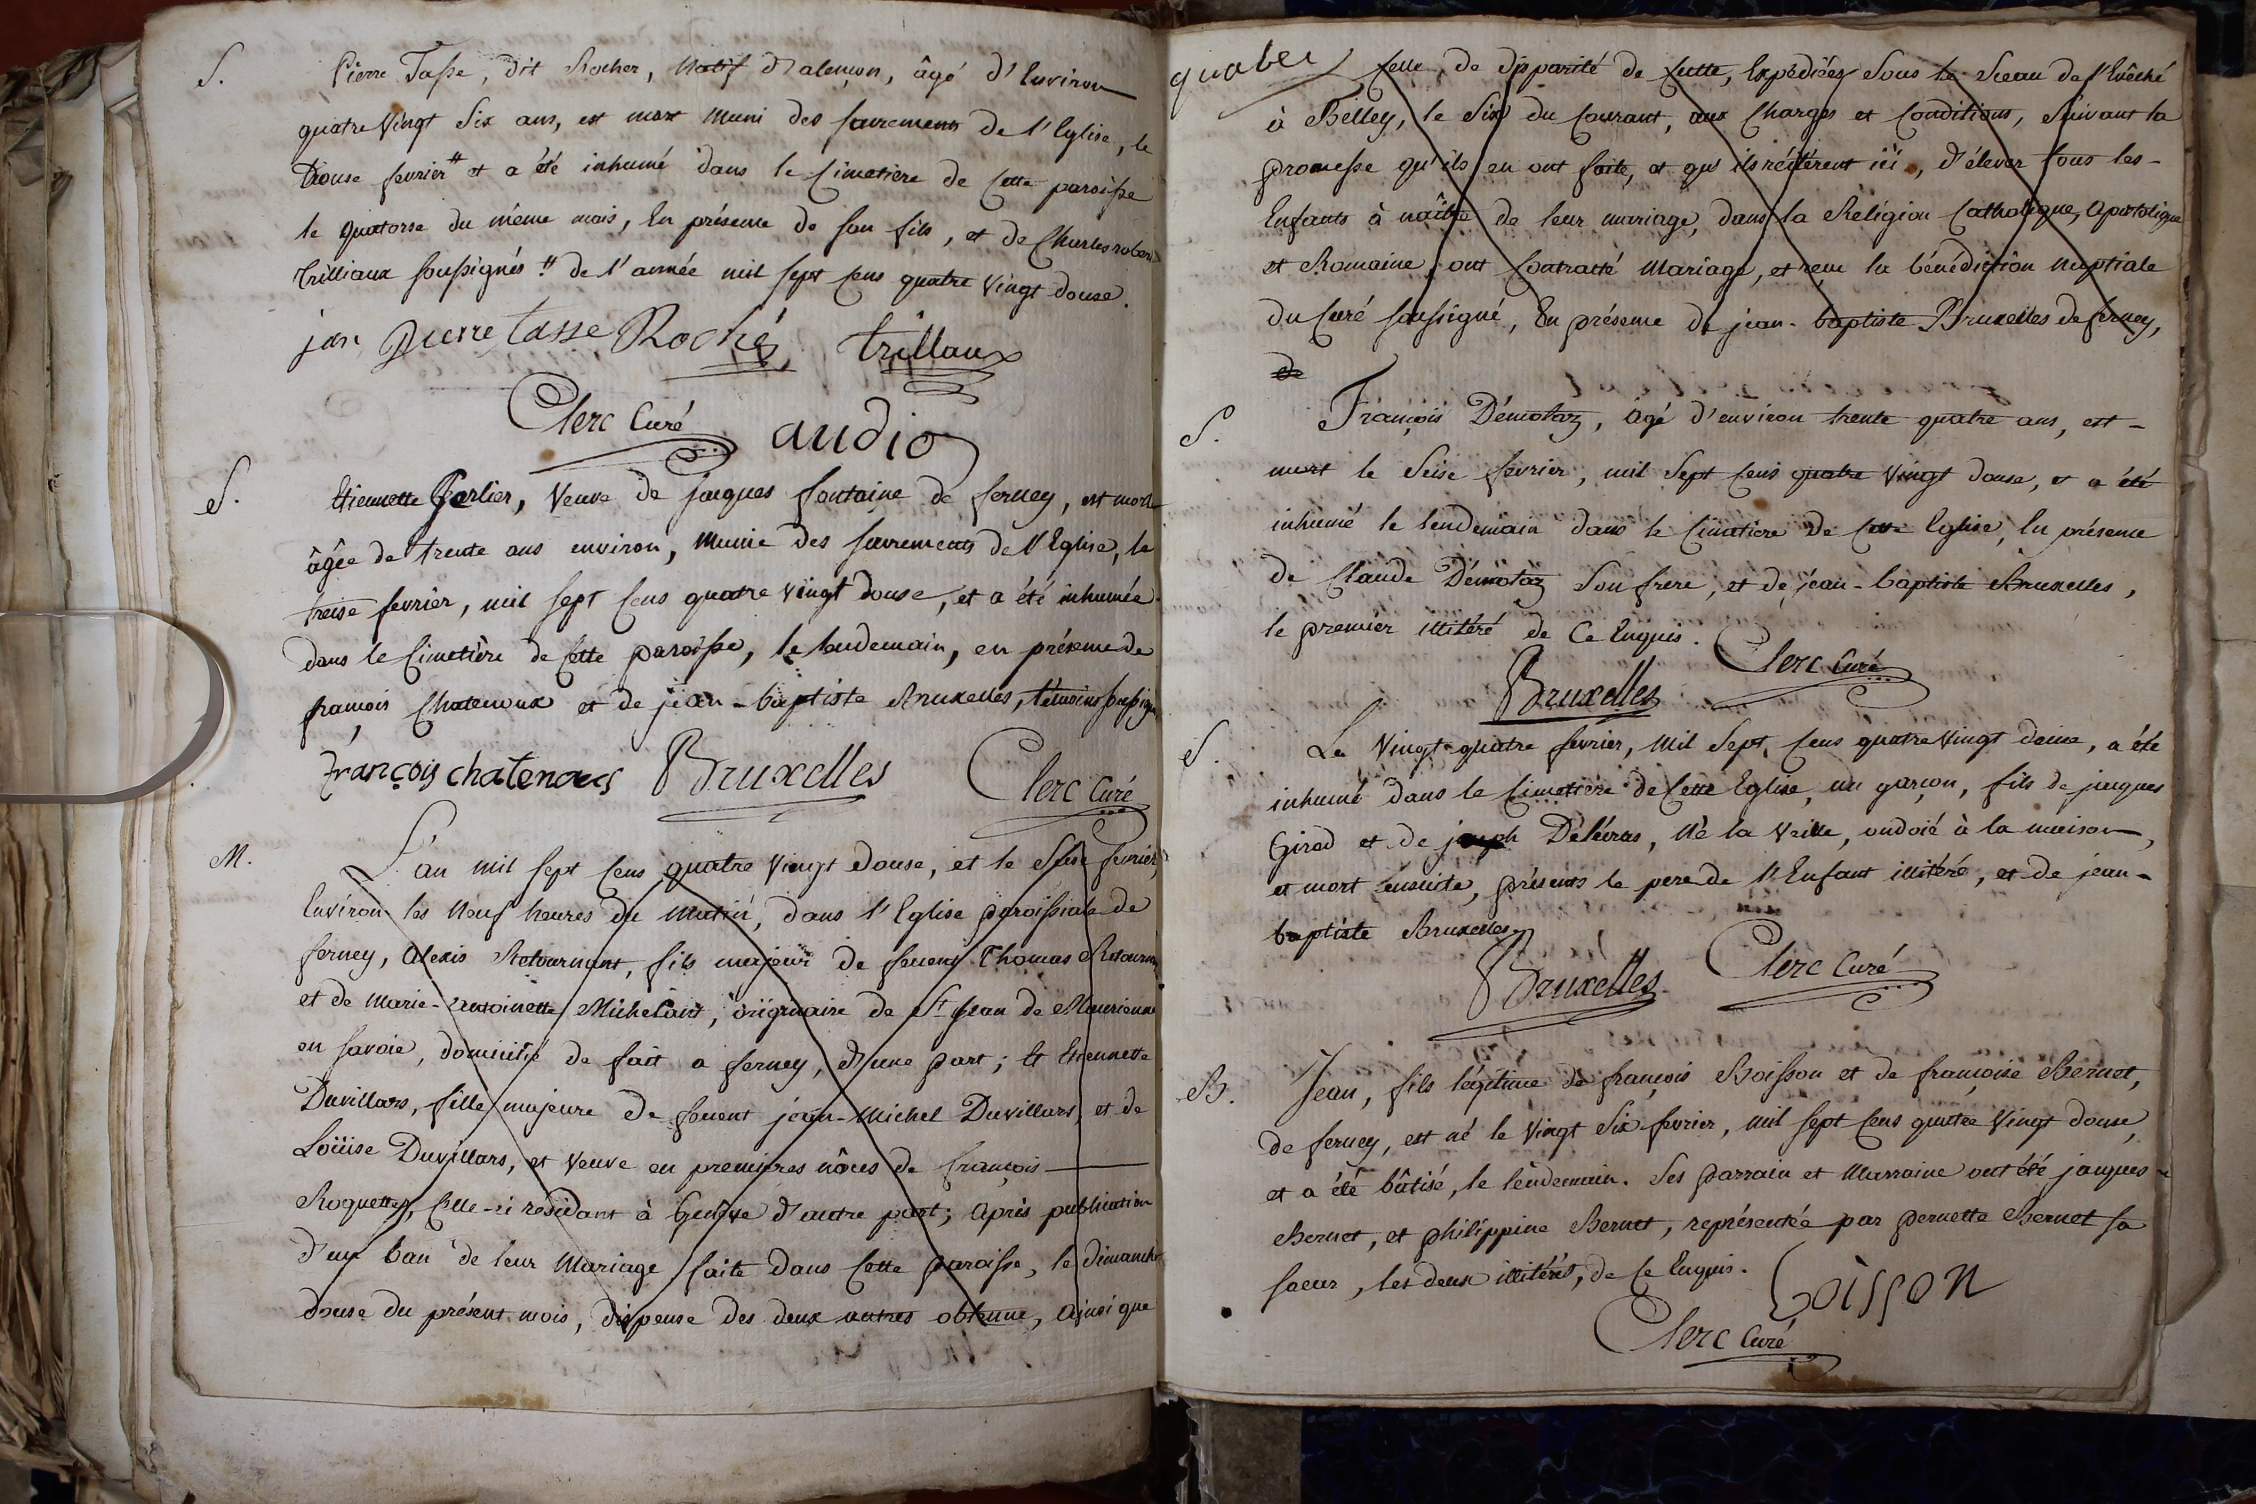 S. Pierre Tasse, dit Rocher, Natif d'alençon, âgé d'Environ
quatre Vingt Six ans, est mort Muni des sacrements de l'Eglise, le
Douse fevrier # et a été inhumé dans le Cimetière de Cette paroisse
le quatorse du même mois, En présence de son fils, et de Charles robert
trilliaux soussignés # de l'année mil sept Cens quatre Vingt douse.
jan Pierre tasse Roché, trillaux
Clerc Curé audio
S. Etiennette Perlier, Veuve de jaques fontaine de ferney, est morte
âgée de trente ans environ, Munie des sacrements de l'Eglise, le
treise fevrier, mil sept Cens quatre vingt douse, et a été inhumée
dans le Cimetière de Cette paroisse, le lendemain, en présence de
françois Chatenoux et de jean-baptiste Bruxelles, témoins soussignés
François chatenoux Bruxelles Clerc Curé
M. L'an mil sept Cens quatre Vingt douse, et le Seise fevrier,
Environ les Neuf heures du Matin, dans l'Eglise paroissiale de
ferney, Alexis Retournant, fils majeur de fevent Thomas
et de Marie-antoinette Michelant, originaire de St jean de Maurienne
en savoie, domicilié de fait a ferney, d'une part; Et Etiennette
Duvillars, fille majeure de fevent jean-Michel Duvillars, et de
Loüise Duvillars, et Veuve en premieres nôces de françois
Roquettes, Celle-ci residant à Genêve d'autre part; Après publication
d'un ban de leur Mariage faite dans Cette paroisse, le dimanche
douse du présent mois, dispense des deux autres obtenue, Ainsi que
Celle de disparité de Culte, Expédiées Sous le Sceau de l'Evêché
à Belley, le Six du Courant, aux Charges et Conditions, Suivant la
promesse qu'ils en ont faite, et qu'ils réitèrent ici, d'élever tous les
Enfants à naître de leur mariage, dans la Réligion Catholique, Apostolique
et Romaine, ont Contracté Mariage, et reçu la bénédiction nuptiale
du Curé soussigné, En présence de jean-baptiste Bruxelles de ferney,
de
S. François Démotaz, Agé d'environ trente quatre ans, est
mort le Seise fevrier, mil Sept Cens quatre Vingt douse, et a été
inhumé le lendemain dans le Cimetiere de Cette Eglise, En présence
de Claude Démotaz Son frere, et de jean-baptiste Bruxelles,
le premier illitéré de Ce Enquis. Clerc Curé
Bruxelles
S. Le Vingt-quatre fevrier, Mil Sept Cens quatre Vingt douse, a été
inhumé dans le Cimetière de Cette Eglise, un garçon, fils de jaques
Girod et de Délévras, Né la Veille, ondoié à la maison,
et mort ensuite, présents le pere de l'Enfant illitéré, et de jean-
baptiste Bruxelles.
Bruxelles Clerc Curé
B. Jean, fils légitime de françois Boisson et de françoise Bernet,
de ferney, est né le Vingt Six fevrier, mil sept Cens quatre Vingt douse,
et a été bâtisé, le lendemain. Ses parrain et Marraine ont été jaques
Bernet, et philippine Bernet, représentée par pernette Bernet sa
soeur, les deux illitérés, de Ce Enquis. Boisson
Clerc Curé